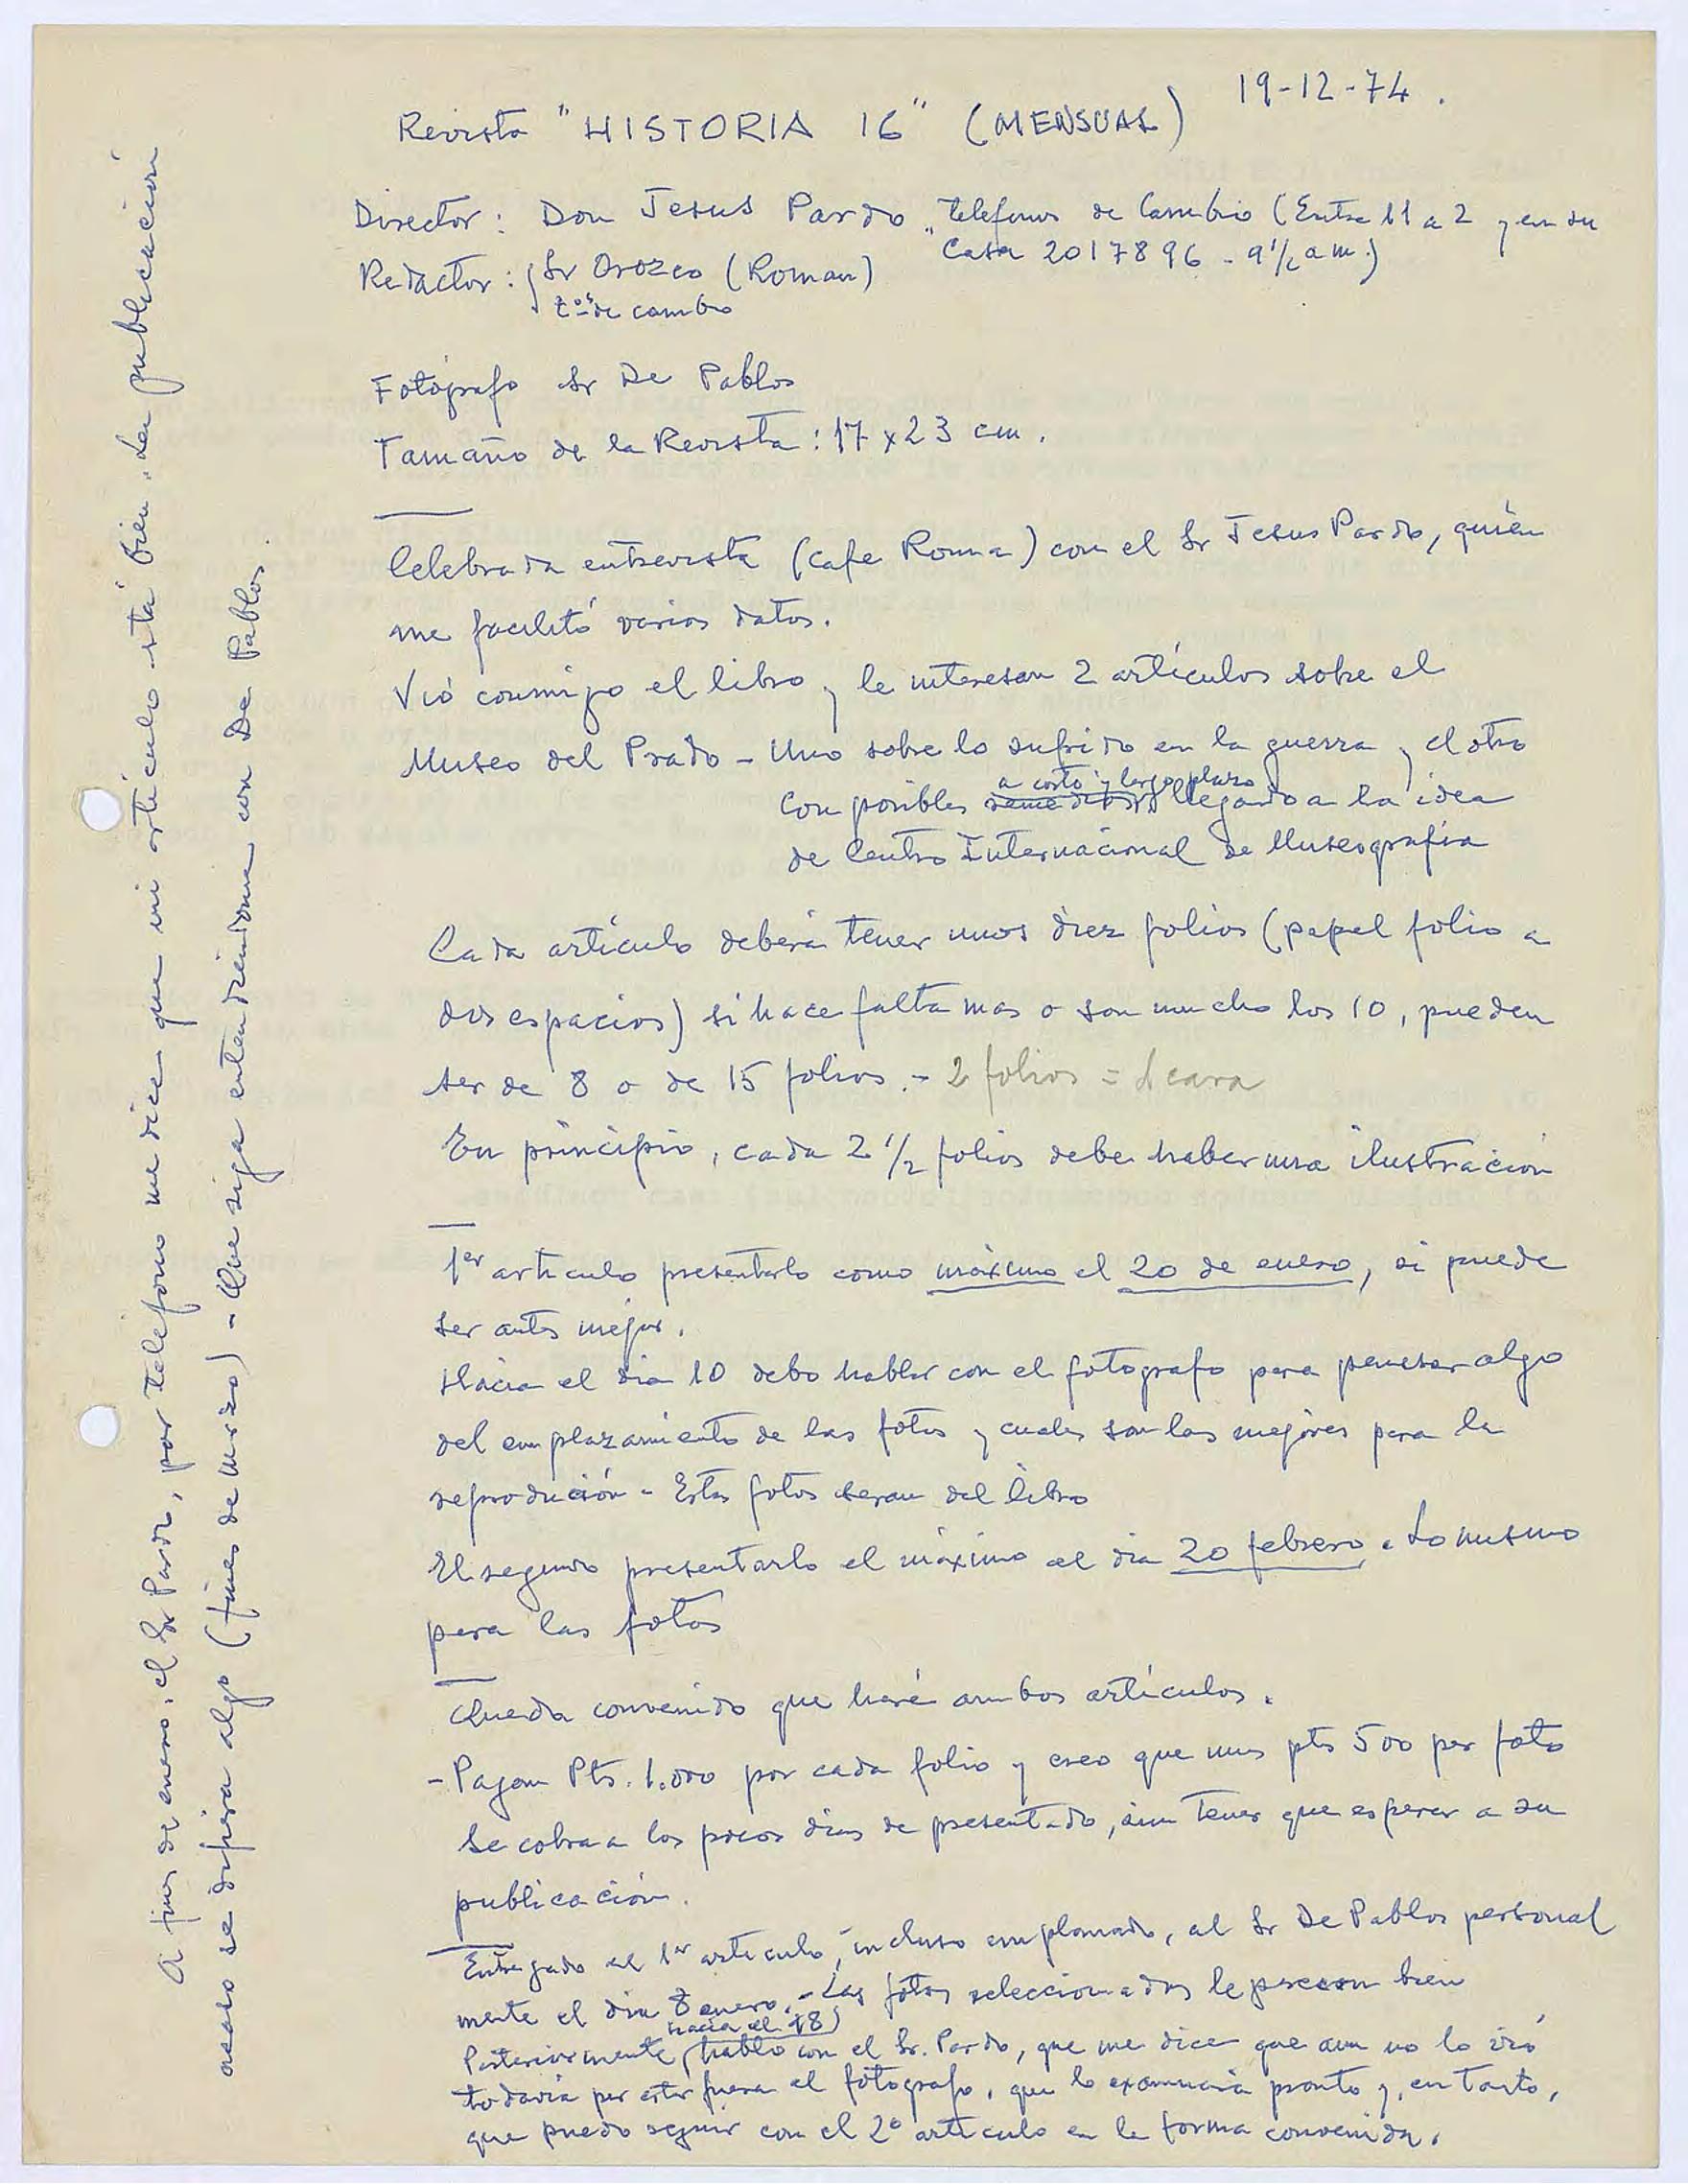 19-12-74.
Revista "HISTORIA 16" (MENSUAL)
Director: Don Jesus Pardo, telefonos de Cambio (Entre 11 a 2 y en su
Casa 2017896 - 9 1/2 a m.)
Redactor: Sr Orozco (Roman)
tº⁵ de cambio
Fotógrafo Sr De Pablos
Tamaño de la Revista: 17 x 23 cm.
Celebrada entrevista (Cafe Roma) con el Sr Jesus Pardo, quién
me facilitó varios datos.
Vió conmigo el libro y le interesan 2 artículos sobre el
Museo del Prado - Uno sobre lo sufrido en la guerra y el otro
a corto y largo plazo
con posibles remedios llegando a la idea
de Centro Internacional de Museografía
Cada artículo deberá tener unos diez folios (papel folio a
dos espacios) si hace falta mas o son mucho los 10, pueden
ser de 8 o de 15 folios. - 2 folios = 1 cara
En principio, cada 2 1/2 folios debe haber una ilustración
1er articulo presentarlo como máximo el 20 de enero, si puede
ser antes mejor.
Hacia el dia 10 debo hablar con el fotografo para pensar algo
del emplazamiento de las fotos y cuales son las mejores para la
reprodución - Estas fotos seran del libro
El segundo presentarlo el máximo el dia 20 febrero. Lo mismo
para las fotos
Queda convenido que haré ambos artículos.
- Pagan Pts. 1.000 por cada folio y creo que unas pts 500 por foto
Se cobra a los pocos dias de presentado, sin tener que esperar a su
publicación.
Entregado el 1er articulo, incluso emplanado, al Sr De Pablos personal
mente el dia 8 enero. - Las fotos seleccionadas le parecen bien
hacia el 18)
Posteriormente (hablo con el Sr. Pardo, que me dice que aun no lo vió
todavia por estar fuera el fotografo, que lo examinará pronto y, en tanto,
que puedo seguir con el 2º articulo en la forma convenida.
A fines de enero, el Sr Pardo, por telefono me dice que mi artículo está bien. La publicación
acaso se difiera algo (fines de marzo) - Que siga entendiéndome con De Pablos.